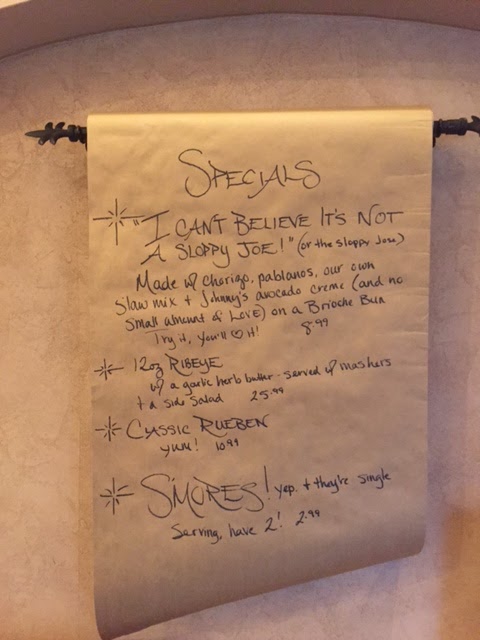 SPECIALS
"I CANT BELIEVE IT'S NOT
A SLOPPY JOE!" (or the sloppy Jose)
Made w/ chorizo, pablanos, our own
slaw mix + Johnny's avocado creme (and no
small amount of LOVE) on a Brioche Bun
Try it, you'll ♡ it! 8.99
12oz RIBEYE
w/ a garlic herb butter - served w/ mashers
+ a side salad 25.99
CLASSIC RUEBEN
yum! 10.99
S'MORES! yep. + they're single
serving, have 2! 2.99